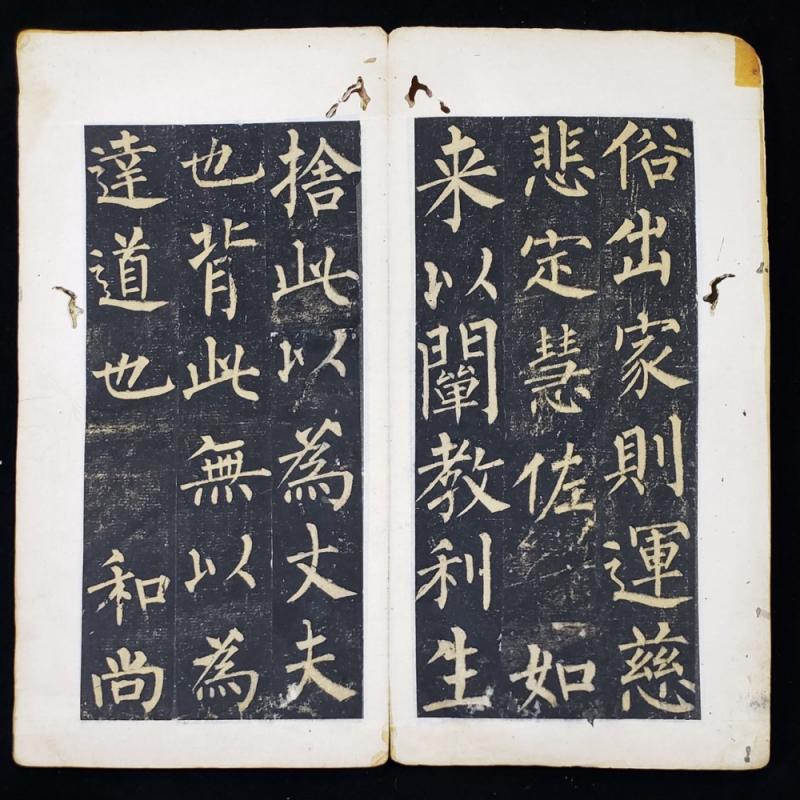 俗出家則運慈
悲定慧佐 如
来以闡教利生
捨此以為丈夫
也背此無以為
達道也 和尚